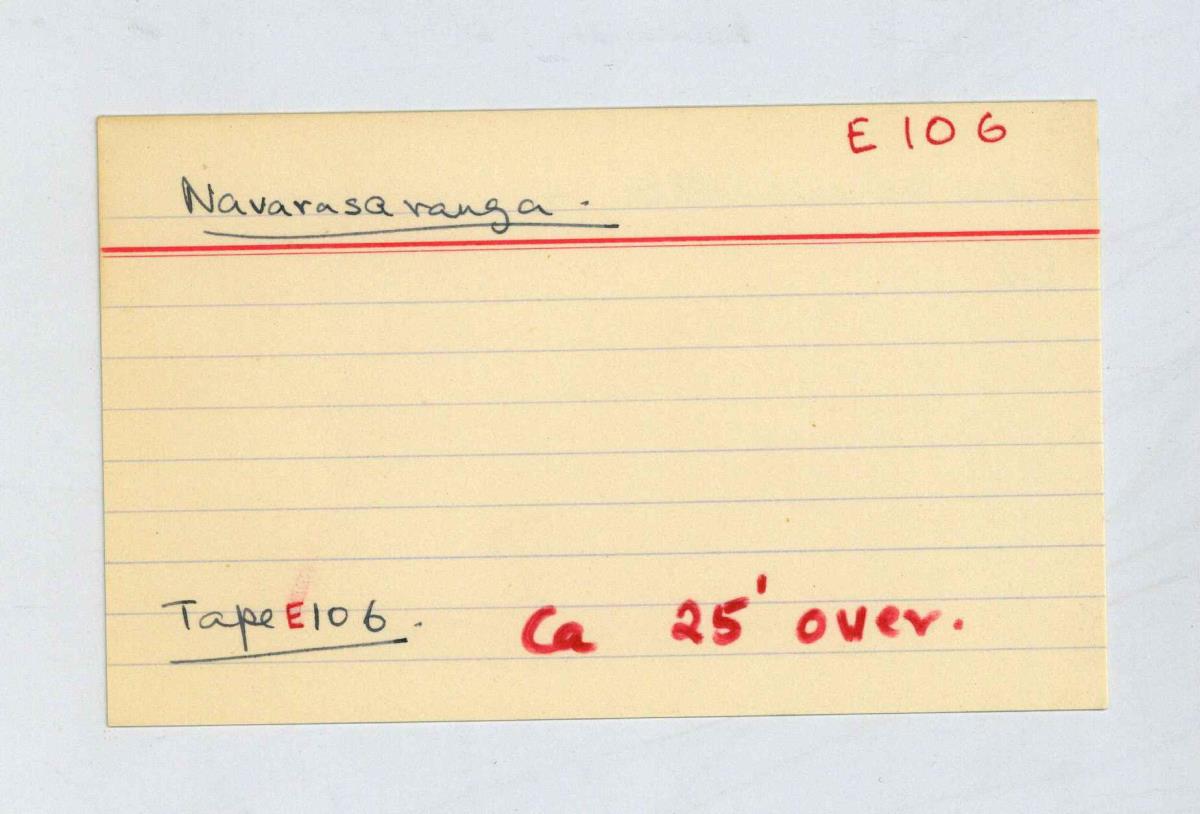 E 106
Navarasaranga.
Tape E106. Ca 25' over.